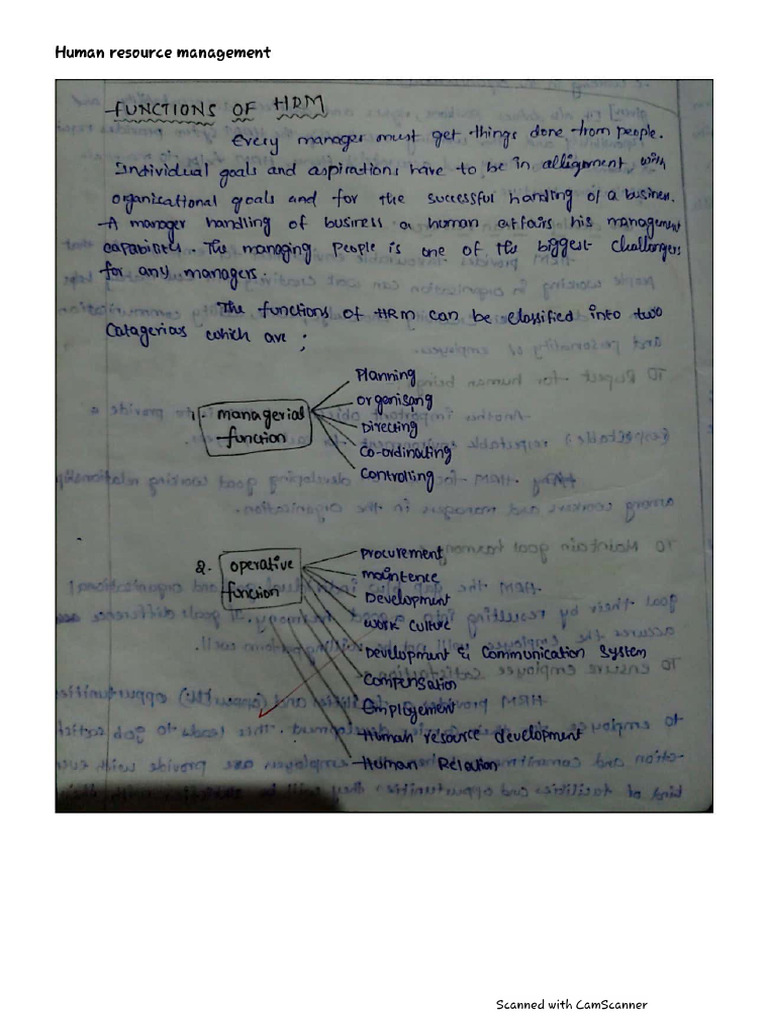 Human resource management
FUNCTIONS OF HRM
Every manager must get things done from people.
Individual goals and aspirations have to be in allignment with
organisational goals and for the successful handling of a business.
A manager handling of business a human affairs his management
capabilities. The managing People is one of the biggest challenges
for any managers.
The functions of HRM can be classified into two
Catagerious which are ;
1. managerial
function
Planning
organising
Directing
Co-ordinating
Controlling
2. operative
function
procurement
maintence
Development
work culture
Development & Communication System
Compensation
Employement
Human resource development
Human Relation
Scanned with CamScanner